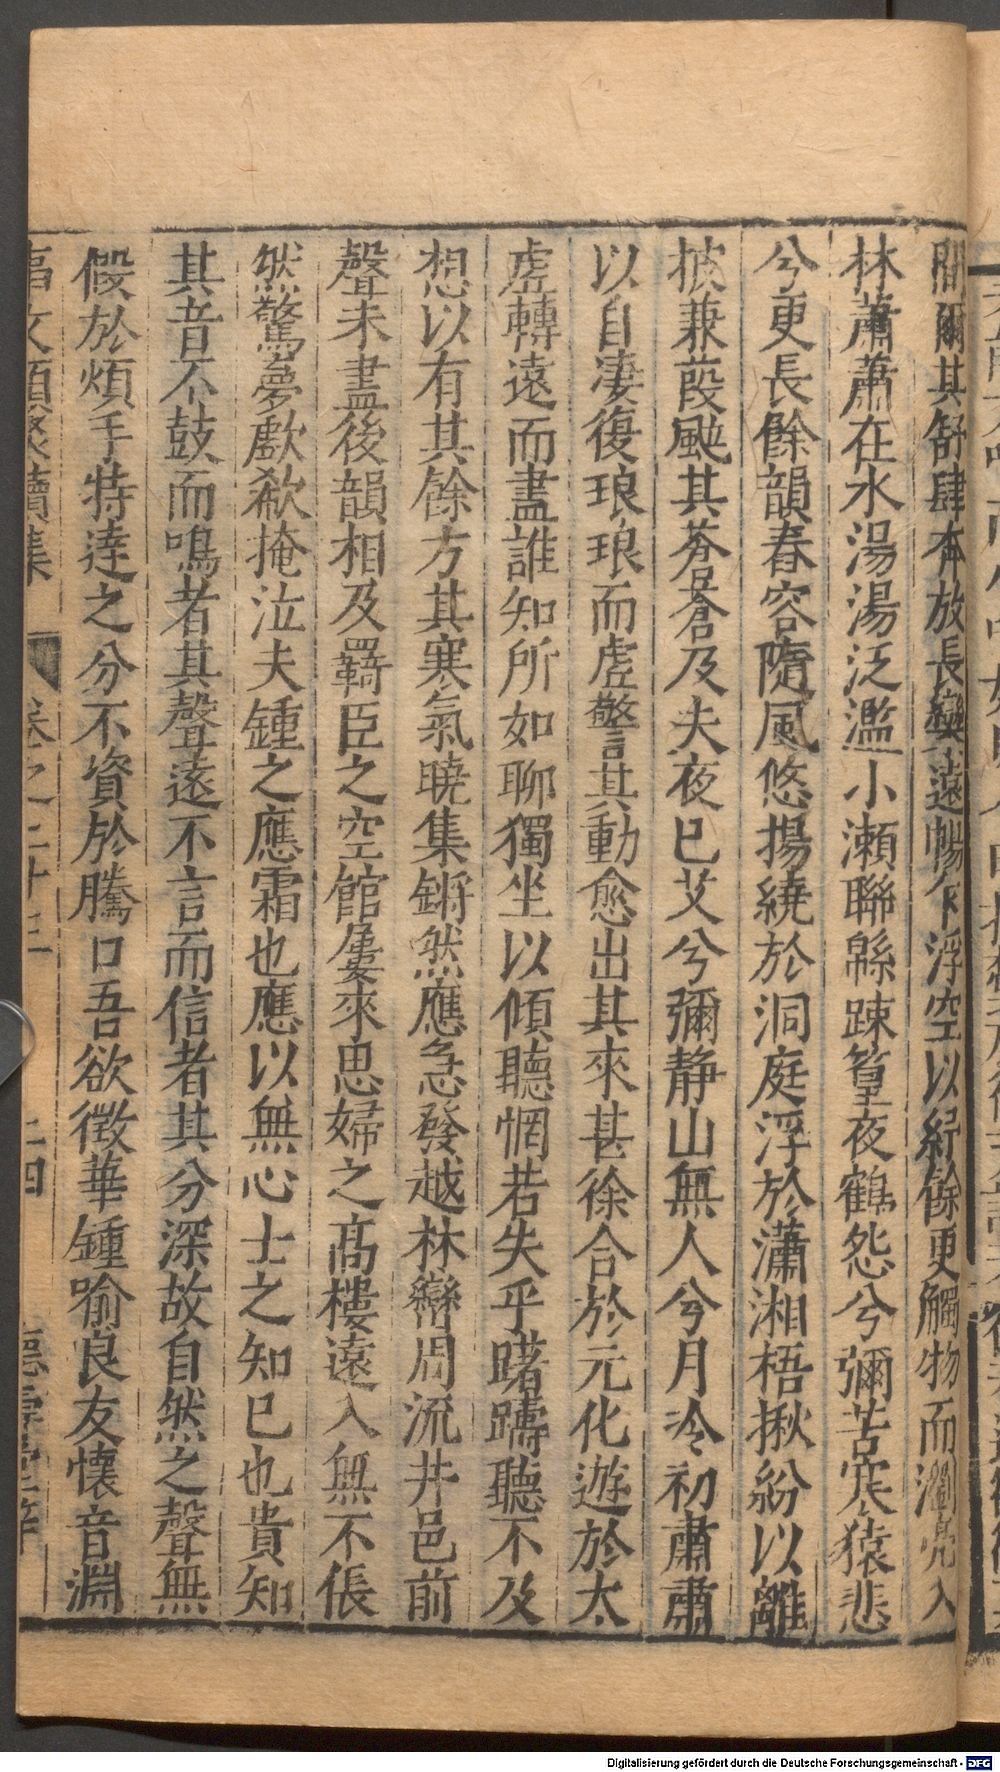 爾其舒肆奔放長縈遠暢乍浮空以紆餘更觸物而瀏亮入
林蕭蕭在水湯湯泛濫小瀬聯緜踈篁夜鶴怨兮彌苦寒猿悲
兮更長餘韻舂容隨風悠揚繞於洞庭浮於瀟湘梧揪紛以離
披兼葭颭其蒼蒼及夫夜已艾兮彌静山無人兮月冷初肅肅
以自凄復琅琅而虗警其動愈出其來甚徐合於元化遊於太
虗轉遠而盡誰知所如聊獨坐以傾聽惘若失乎躇躊聽不及
想以有其餘方其寒氣曉集鏘然應急發越林巒周流井邑前
聲未盡後韻相及羇臣之空館屢來思婦之髙樓遠入無不倀
然驚夢歔欷掩泣夫鍾之應霜也應以無心士之知已也貴知
其音不鼓而鳴者其聲遠不言而信者其分深故自然之聲無
假於煩手特達之分不資於騰口吾欲徵華鍾喻良友懷音淵
事文類聚續集 卷之二十三 二四 德壽堂梓
Digitalisierung gefördert durch die Deutsche Forschungsgemeinschaft - DFG